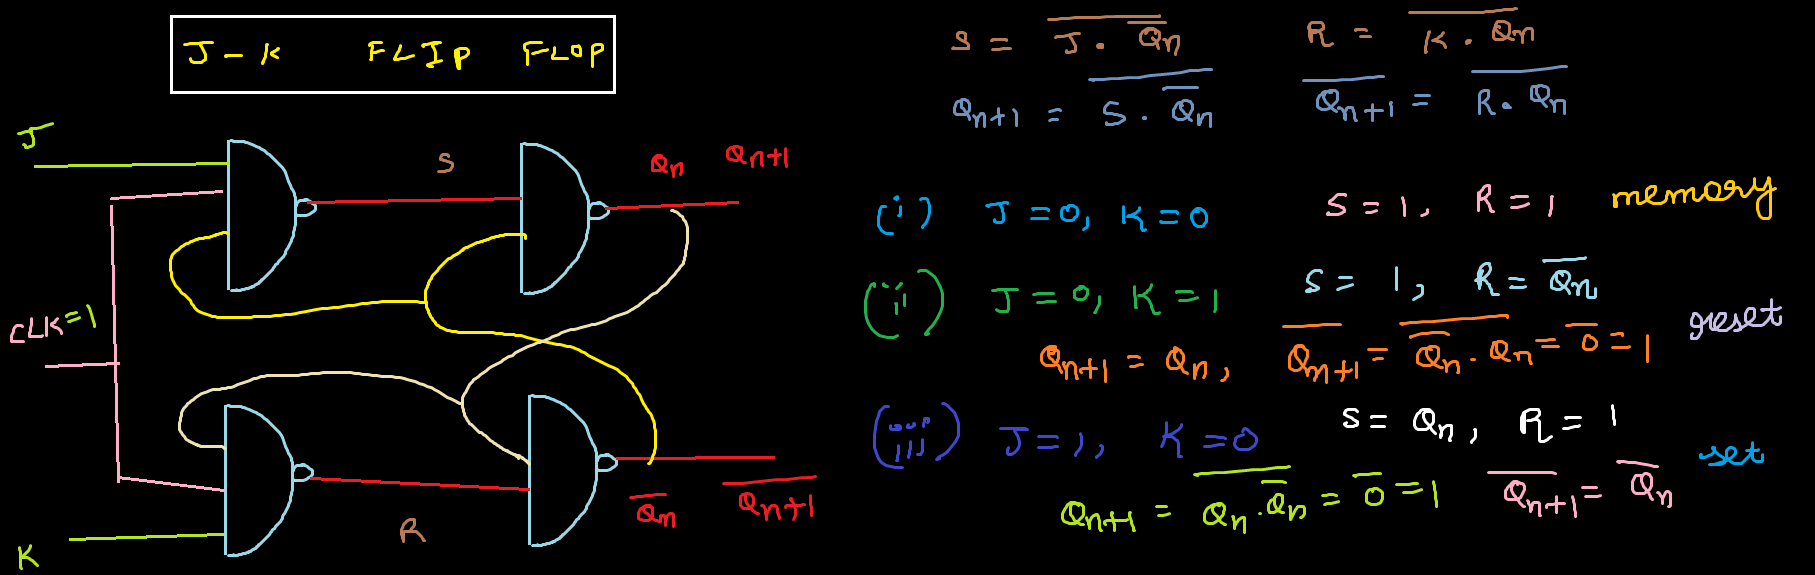 J - K FLIP FLOP
J
CLK=1
K
S
R
Qn Qn+1
Q̅n̅ Q̅n̅+̅1̅
S = \overline{J . \overline{Qn}} R = \overline{K . Qn}
Qn+1 = \overline{S . \overline{Qn}} \overline{Qn+1} = \overline{R . Qn}
(i) J = 0, K = 0 S = 1, R = 1 memory
(ii) J = 0, K = 1 S = 1, R = \overline{Qn} reset
Qn+1 = Qn, \overline{Qn+1} = \overline{\overline{Qn} . Qn} = \overline{0} = 1
(iii) J = 1, K = 0 S = Qn, R = 1 set
Qn+1 = \overline{Qn . \overline{Qn}} = \overline{0} = 1 \overline{Qn+1} = \overline{Qn}